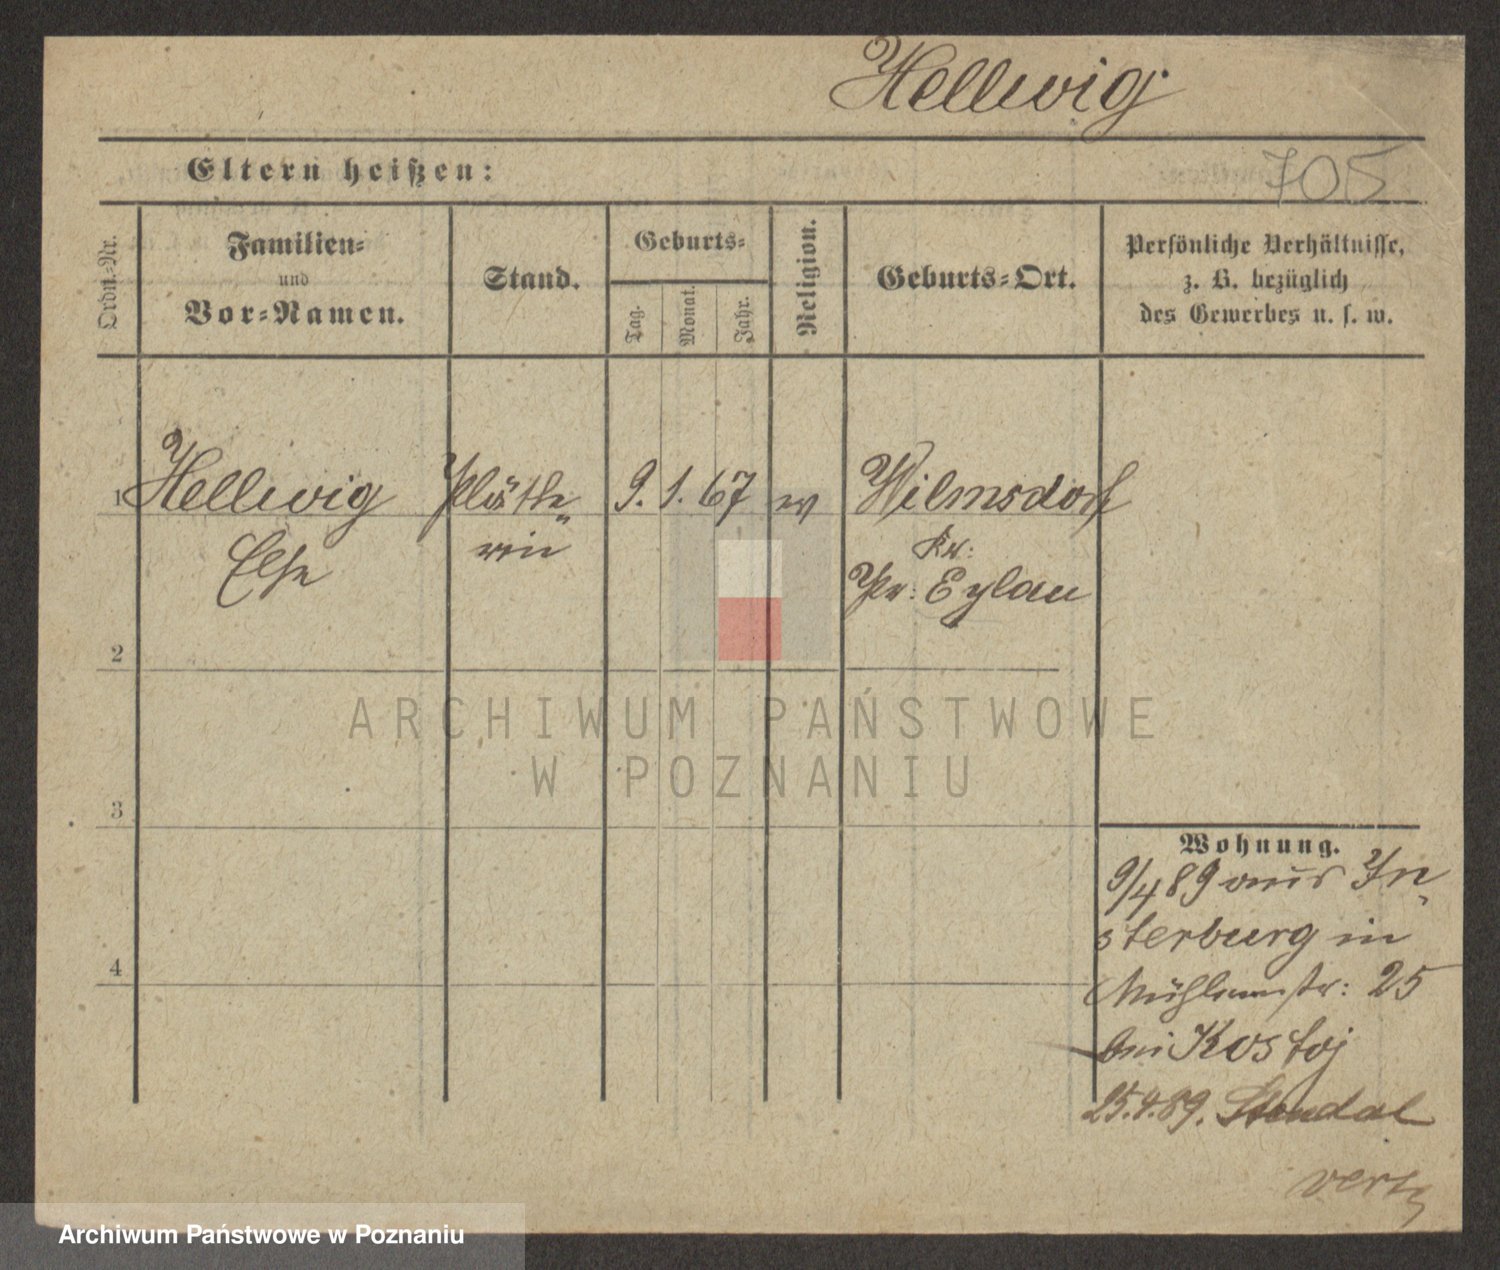 Hellwig
Eltern heißen:
705
Ordn.-Nr.
Familien-
und
Vor-Namen.
Stand.
Geburts-
Tag.
Monat.
Jahr.
Religion.
Geburts-Ort.
Persönliche Verhältnisse,
z. B. bezüglich
des Gewerbes u. s. w.
1 Hellwig Plätte- 9. 1. 67 Wilmsdorf
Else rin Kr:
Pr: Eylau
2
3
4
Wohnung.
9/4 89 aus In-
sterburg in
Mühlenstr: 25
bei Kostoj
25.4.89. Stendal
verz
ARCHIWUM PAŃSTWOWE
W POZNANIU
Archiwum Państwowe w Poznaniu